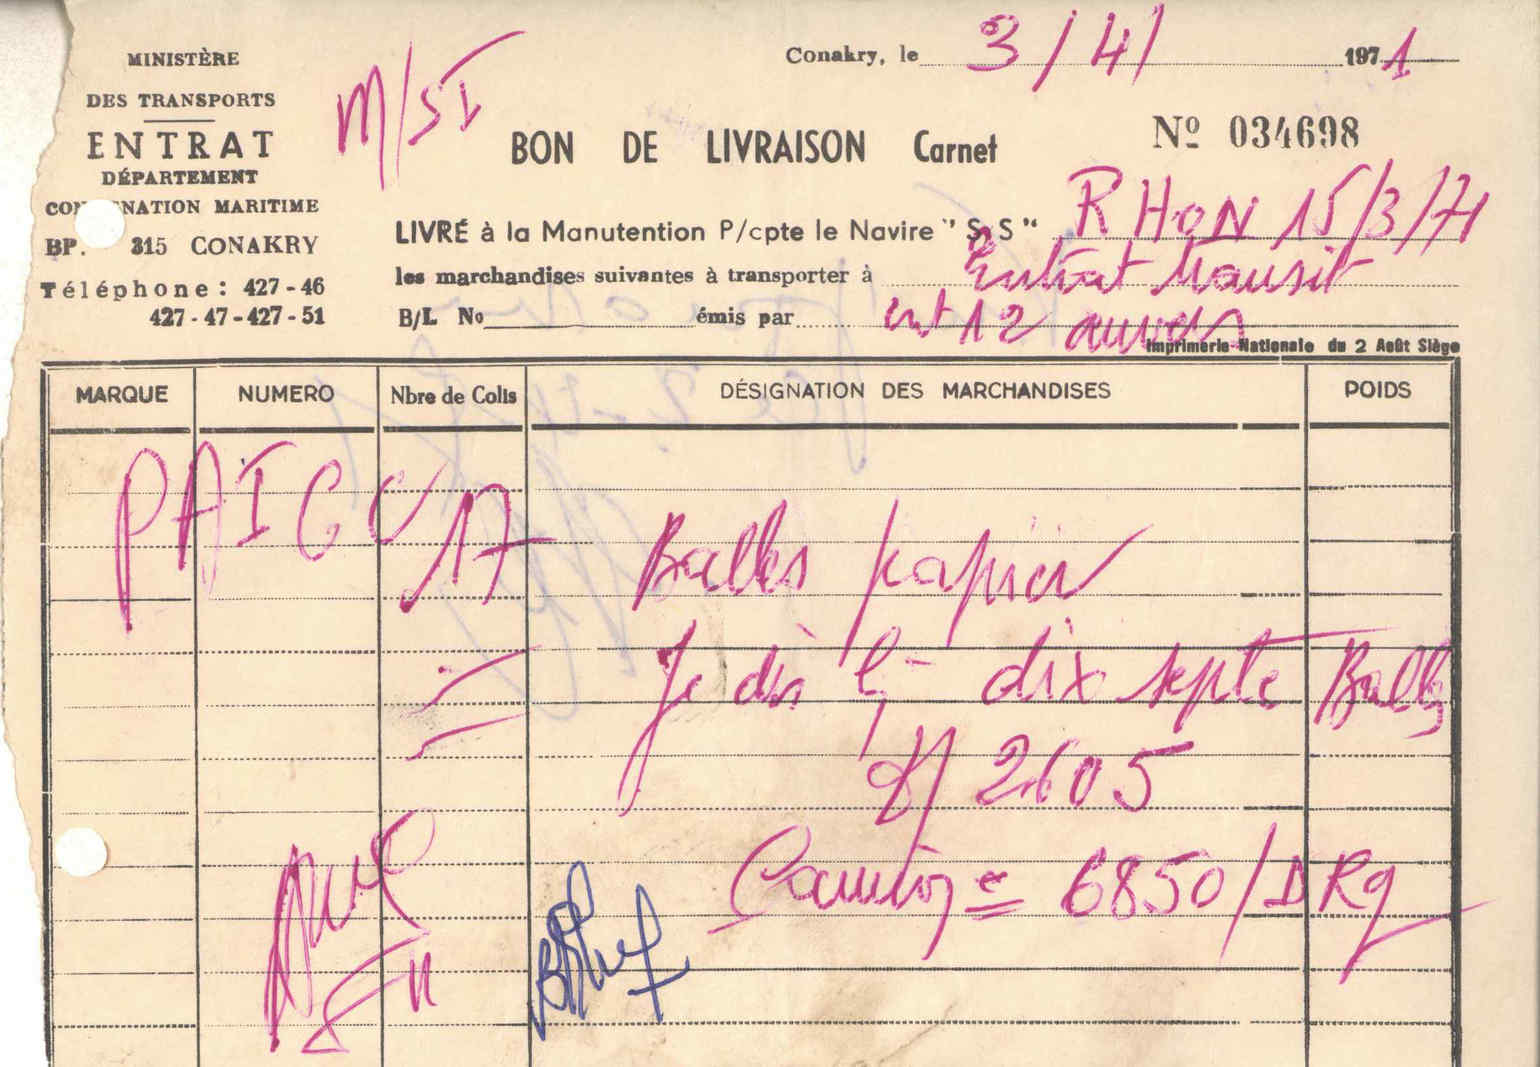 MINISTÈRE
DES TRANSPORTS
ENTRAT
DÉPARTEMENT
CONSIGNATION MARITIME
BP. 315 CONAKRY
Téléphone: 427-46
427-47-427-51
M/SI
Conakry, le 3/4/ 1971
BON DE LIVRAISON Carnet
Nº 034698
LIVRÉ à la Manutention P/cpte le Navire "S/S" RHON 15/3/71
les marchandises suivantes à transporter à Entrat transit
B/L No émis par ent 12
Imprimerie Nationale du 2 Août Siège
MARQUE NUMERO Nbre de Colis DÉSIGNATION DES MARCHANDISES POIDS
PAIGC 17 Balles papier
Je dis dix septe Balles
2605
Camion = 6850/DRG